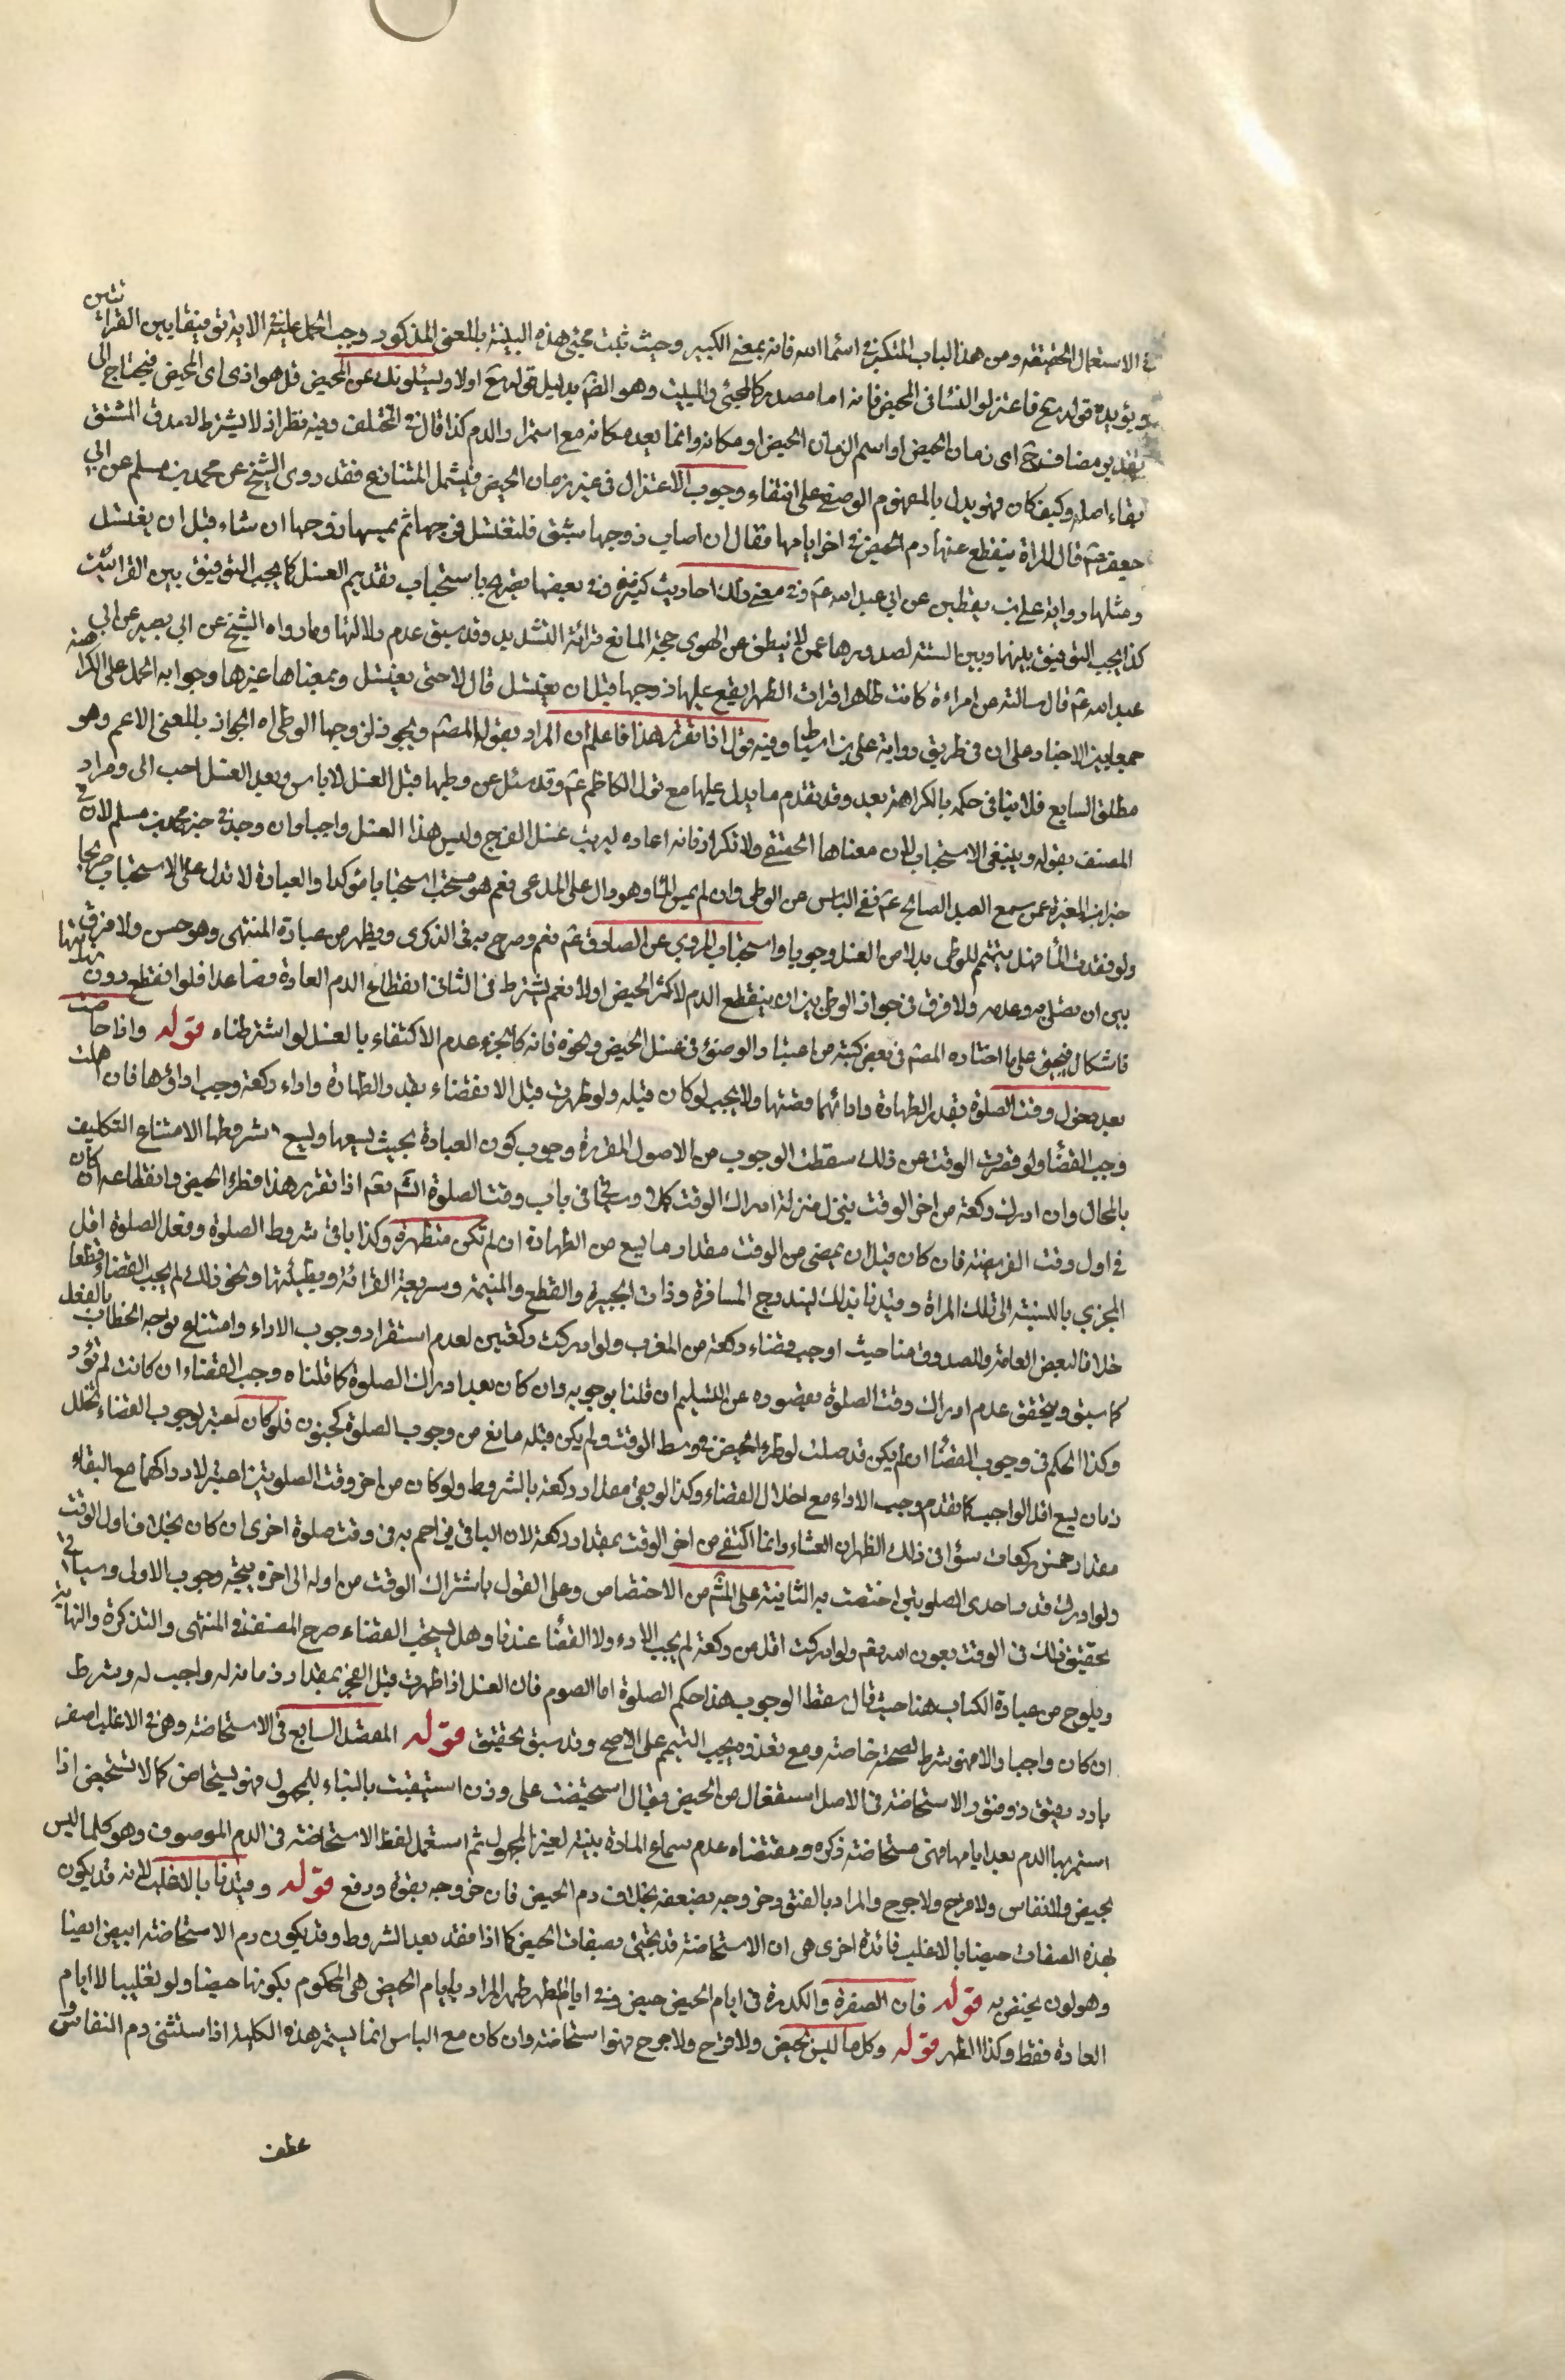 في الاستعمال الحقيقة ومن هذا الباب المتكبر في اسماء الله فانه بمعنى الكبير وحيث ثبت مجئ هذه البنية بالمعنى المذكور وجب الحمل عليه في الاية توفيقا بين القرائتين
ويؤيده قوله تع فاعتزلوا النساء في المحيض فانه اما مصدر كالمجئ والمبيت وهو الظ بدليل قوله تع اولا ويسئلونك عن المحيض قل هو اذى اى الحيض فيحتاج الى
تقدير مضاف ح اى زمان الحيض او اسم الزمان الحيض او مكانه وانما بعده مكانه مع استمرار الدم كذا قال في المختلف وفيه نظر اذ لا يشترط لصدق المشتق
بقاء اصله وكيف كان فهو يدل بالمفهوم الوصفي على انتفاء وجوب الاعتزال في غير زمان الحيض فيشمل المتنازع فقد روى الشيخ عن محمد بن مسلم عن ابي
جعفر عم قال المراة ينقطع عنها دم الحيض في اخر ايامها فقال ان اصاب زوجها شبق فلتغتسل فرجها ثم يمسها زوجها ان شاء قبل ان يغتسل
ومثلها رواية على بن يقطين عن ابي عبد الله عم وفي معنى ذلك احاديث كثيرة وفي بعضها تصريح باستحباب تقديم الغسل كما يجب التوفيق بين القرائتين
كذا يجب التوفيق بينهما وبين السنة لصدورها عمن لا ينطق عن الهوى حجة المانع قرائة التشديد وقد سبق عدم دلالتها وما رواه الشيخ عن ابي بصير عن ابي
عبد الله عم قال سالته عن امراءة كانت طاهرا فرات الطهر ايقع عليها زوجها قبل ان يغتسل قال لا حتى يغتسل وبمعناها غيرها وجوابه الحمل على الكراهة
جمعا بين الاخبار على ان في طريق رواية على بن اسباط وفيه قول اذا تقرر هذا فاعلم ان المراد بقوله المص ويجوز لزوجها الوطى اه الجواز بالمعنى الاعم وهو
مطلق السايغ فلا ينافي حكمه بالكراهة بعد وقد تقدم ما يدل عليها مع قول الكاظم عم وقد سئل عن وطيها قبل الغسل لا باس وبعد الغسل احب الى ومراد
المصنف بقوله وينبغي الاستحباب لان معناها الحقيقي ولا تكرار فانه اعاده ليرتب غسل الفرج وليس هذا الغسل واجبا وان وجد في خبر محمد بن مسلم لان في
خبر ابن المغيرة عمن سمع العبد الصالح عم نفي الباس عن الوطى وان لم يمس الماء وهو دال على المدعى نعم هو مستحب استحبابا مؤكدا والعبارة لا تدل على الاستحباب صريحا
ولو فقدت الماء فهل يتيمم للوطى بدلا من الغسل وجوبا واستحبابا المروي عن الصادق عم نعم وصرح به في الذكرى ويظهر من عبارة المنتهى وهو حسن ولا فرق
بين ان تصلى به وعدمه ولا فرق في جواز الوطى بين ان ينقطع الدم لاكثر الحيض اولا نعم يشترط في الثاني انقطاع الدم العادة فصاعدا فلو انقطع دون
فاشكال فيجئ على ما اختاره المص في بعض كتبه من اعتبار الوضوء في غسل الحيض ونحوه فانه كالجزء عدم الاكتفاء بالغسل لو اشترطناه قوله واذا حاضت
بعد دخول وقت الصلوة بقدر الطهارة وادائهما قضتها ولا يجب لو كان قبله ولو طهرت قبل الانقضاء بقدر الطهارة واداء ركعة وجب اداؤها فان اهملت
وجب القضاء ولو قصرت الوقت عن ذلك سقطت الوجوب من الاصول المقررة وجوب كون العبادة بحيث يسعها ويسع شروطها لامتناع التكليف
بالمحال وان ادراك ركعة من اخر الوقت ينزل منزلة ادراك الوقت كلا وسيجئ في باب وقت الصلوة انش نعم اذا تقرر هذا فطراء الحيض وانقطاعه ان كان
في اول وقت الفريضة فان كان قبل ان يمضى من الوقت مقدار ما يسع من الطهارة ان لم تكن متطهرة وكذا باقي شروط الصلوة وفعل الصلوة اقل
المجزي بالنسبة الى تلك المراة وقيدنا بذلك ليندرج المسافرة وذات الجبيرة والقطع والمتيمة وسريعة القرائة وبطيئتها ونحو ذلك لم يجب القضاء قطعا
خلافا لبعض العامة والصدوق منا حيث اوجب قضاء ركعة من المغرب ولو ادركت ركعتين لعدم استقرار وجوب الاداء وامتناع توجه الخطاب بالفعل
كما سبق ويتحقق عدم ادراك وقت الصلوة بقصوره عن التسليم ان قلنا بوجوبه وان كان بعد ادراك الصلوة كما قلناه وجب القضاء ان كانت لم تؤد
وكذا الحكم في وجوب القضاء ان لم يكن قد صلت لو طرء الحيض في وسط الوقت ولم يكن قبله مانع من وجوب الصلوة كجنون فلو كان اعتبر لوجوب القضاء تخلل
زمان يسع اقل الواجب كما تقدم وجب الاداء مع اخلال القضاء وكذا لو بقى مقدار ركعة بالشروط ولو كان من اخر وقت الصلوتين اعتبر لادراكهما مع البقاء
مقدار خمس ركعات سواء في ذلك الظهران العشاء وانما اكتفي من اخر الوقت بمقدار ركعة لان الباقي في اجم به في وقت صلوة اخرى ان كان بخلاف اول الوقت
ولو ادرك قدر احدى الصلوتين اختصت به الثانية على المش من الاختصاص وعلى القول باشتراك الوقت من اوله الى اخره يتجه وجوب الاولى وسياتي
تحقيق ذلك في الوقت بعون الله نعم ولو ادركت اقل من ركعة لم يجب الاداء ولا القضاء عندنا وهل يستحب القضاء صرح المصنف في المنتهى والتذكرة والنهاية
ويلوح من عبارة الكتاب هنا حيث قال سقط الوجوب هذا حكم الصلوة اما الصوم فان الغسل اذا طهرت قبل الفجر بمقدار زمانه له واجب له وشرط
ان كان واجبا والا فهو شرط لصحته خاصة ومع تعذره يجب التيمم على الاصح وقد سبق تحقيق قوله الفصل السابع في الاستحاضة وهى في الاغلب اصفر
بارد رقيق ذو فتور الاستحاضة في الاصل استفعال من الحيض يقال استحيضت على وزن استيقنت بالبناء للمجهول فهو يستحاض كما لا تستحيض اذا
استمر بها الدم بعد ايامها فهى مستحاضة ذكره ومقتضاه عدم سماع المادة بنية لغير المجهول ثم استعمل لفظ الاستحاضة في الدم الموصوف وهو كلما ليس
بحيض ولا نفاس ولا قرح ولا جرح والمراد بالفتور خروجه بضعفه بخلاف دم الحيض فان خروجه بقوة ودفع قوله وقيدنا بالاغلب لانه قد يكون
لهذه الصفات حيضا بالاغلب فائدة اخرى هى ان الاستحاضة قد تجئ بصفات الحيض كما اذا فقد بعد الشروط وقد يكون دم الاستحاضة ابيض ايضا
وهو لون يختص به قوله فان الصفرة والكدرة في ايام الحيض حيض وفي ايام الطهر طهر المراد بايام الحيض هى المحكوم بكونها حيضا ولو تغليبا لا ايام
العادة فقط وكذا الطهر قوله وكل ما ليس بحيض ولا قرح ولا جرح فهو استحاضة وان كان مع الياس انما يستمر هذه الكلية اذا استثنى دم النفاس
عطف